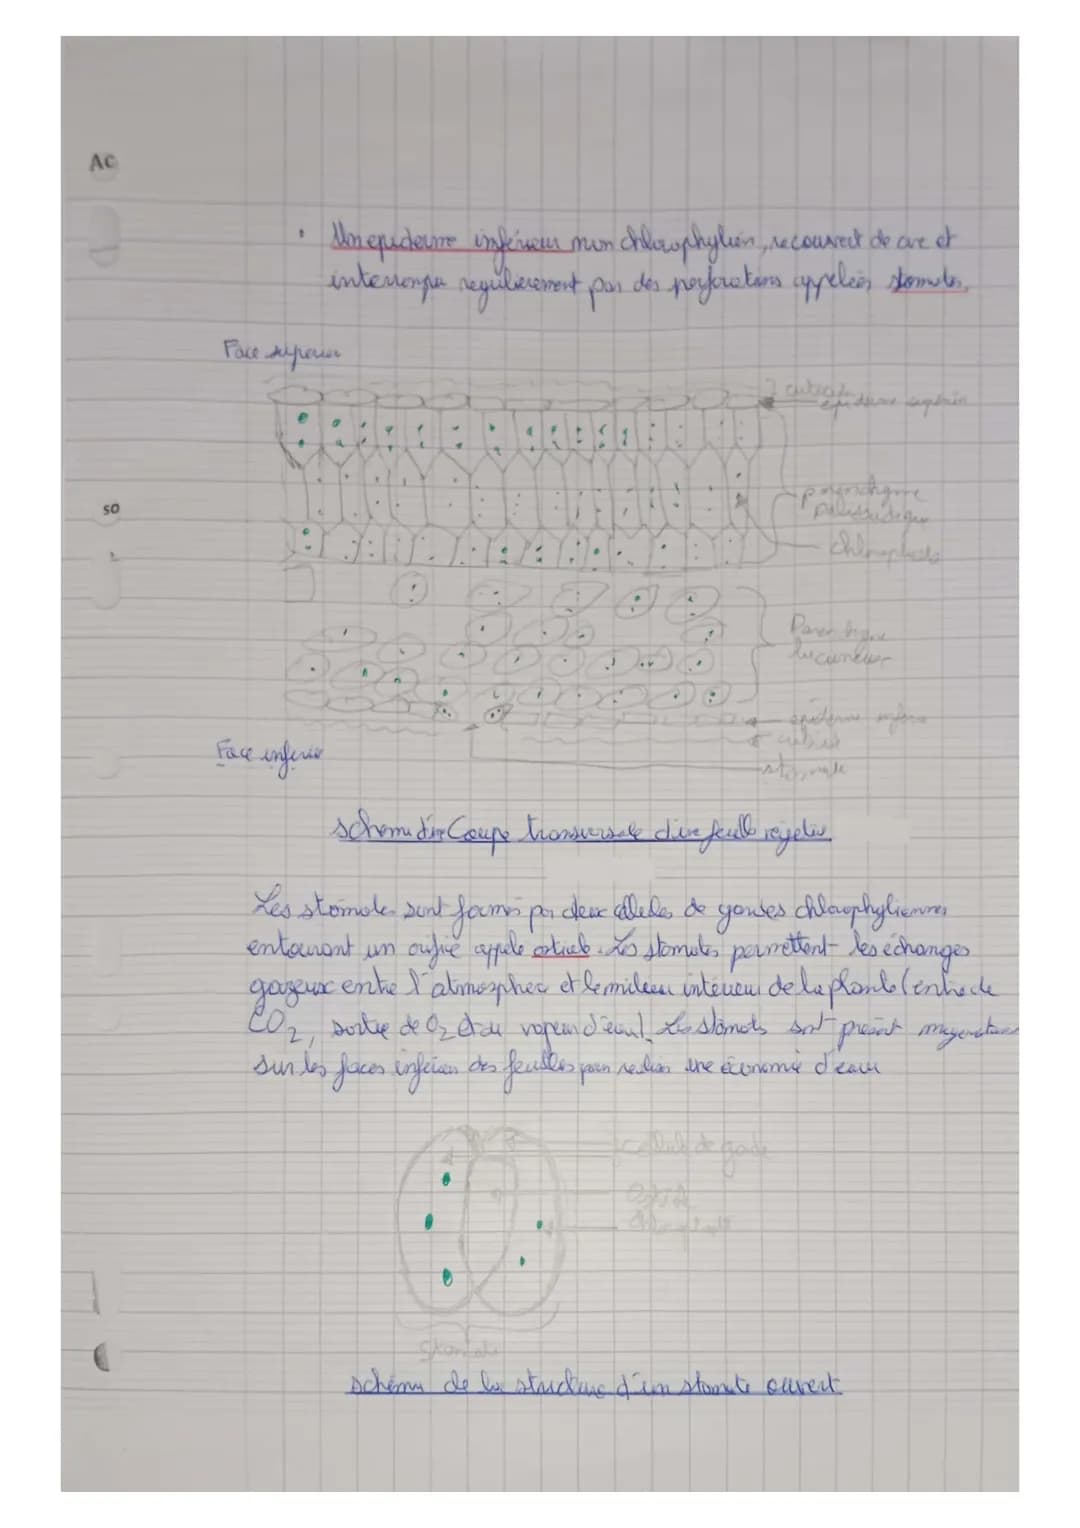 AC
• Un epiderme inférieur non chlorophylien, recouvert de cire et
interrompu regulièrement par des perforations appelées stomates,
Face superieur
cuticule
épiderme supérieur
parenchyme
palissadique
SO
chloroplaste
Parenchyme
lacuneux
epiderme inférieur
Face inferieur
stomate
schéma d'une Coupe transversale d'une feuille
Les stomates sont formés par deux cellules de gardes chlorophyliennes
entourant un orifice appelé ostiole. Les stomates permettent les échanges
gazeux entre l'atmosphère et le milieu intérieur de la plante (entrée de
CO2, sortie de O2 et de vapeur d'eau). Les stomates sont présent
sur les faces inférieur des feuilles pour réaliser une économie d'eau
cellule de garde
ostiole
chloroplaste
Stomate
schéma de la structure d'un stomate ouvert